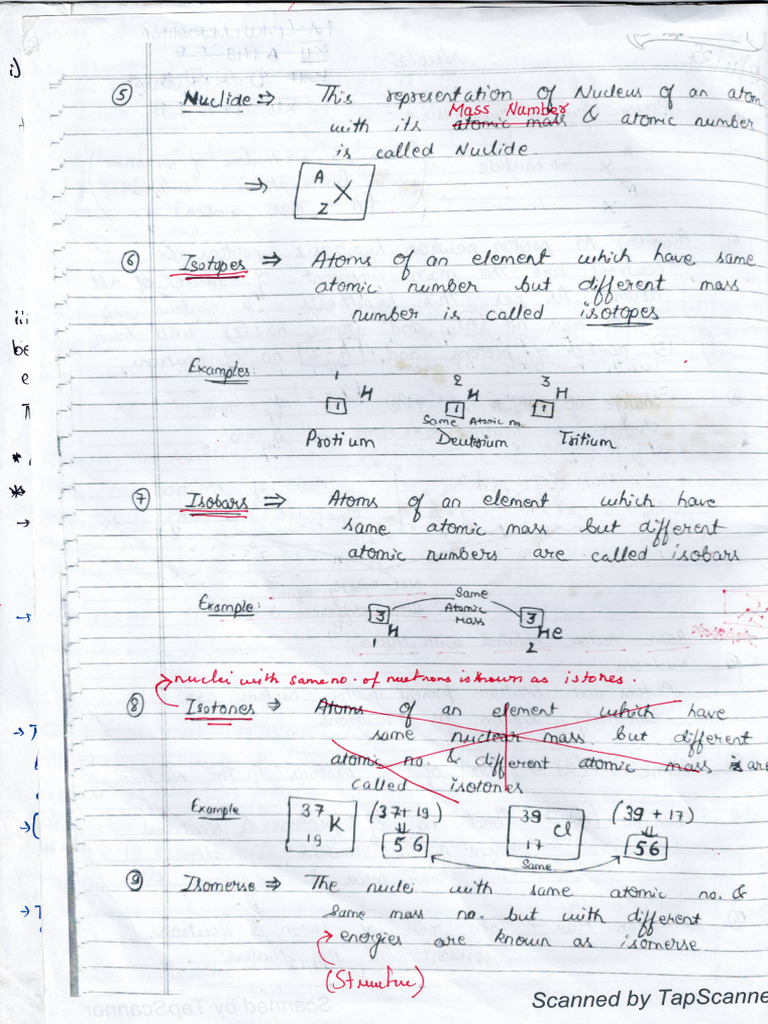 i)
⑤ Nuclide ⇒ This representation of Nucleus of an atom
Mass Number
with its atomic mass & atomic number
is called Nuclide.
⇒ A X
Z
⑥ Isotopes ⇒ Atoms of an element which have same
atomic number but different mass
number is called isotopes
Examples:
1 H 2 H 3 H
1 1 1
Same Atomic no.
Protium Deuterium Tritium
⑦ Isobars ⇒ Atoms of an element which have
same atomic mass but different
atomic numbers are called isobars
Example:
Same
Atomic
Mass
3 H 3 He
1 2
nuclei with same no. of neutrons is known as istones.
⑧ Isotones ⇒ Atoms of an element which have
same nuclear mass but different
atomic no. & different atomic mass is are
called isotones
Example
37 K (37+19) 39 Cl (39+17)
19 56 17 56
Same
⑨ Isomerse ⇒ The nuclei with same atomic no. &
same mass no. but with different
energies are known as isomerse
(Structure)
Scanned by TapScanne